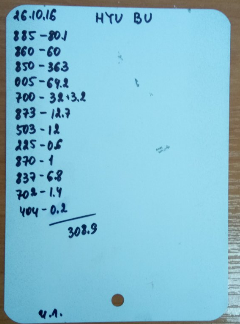 26.10.16 НТУ BU
885-80.1
860-60
850-363
005-64.2
700-32+3.2
873-12.7
503-12
225-0.6
870-1
837-6.8
702-1.4
404-0.2
308.9
ч.1.